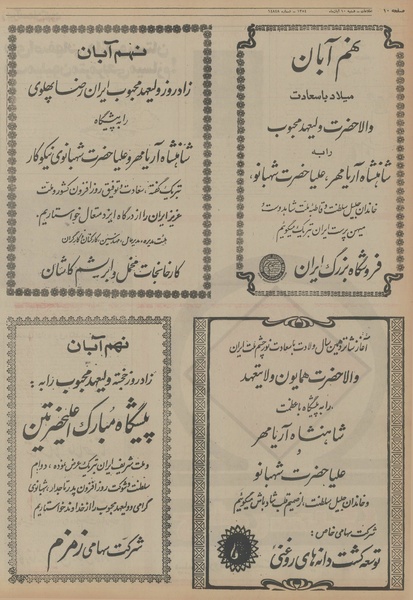 صفحه ۱۰
نهم آبان
میلاد با سعادت
والاحضرت ولیعهد محبوب
را به
شاهنشاه آریامهر، علیاحضرت شهبانو،
خاندان جلیل سلطنت و قاطبه ملت شاهدوست و
میهن پرست ایران تبریک میگوئیم
فروشگاه بزرگ ایران
نهم آبان
زادروز ولیعهد محبوب ایران رضا پهلوی
را به پیشگاه
شاهنشاه آریامهر و علیاحضرت شهبانوی نیکوکار
تبریک گفته، سعادت و توفیق روزافزون کشور و ملت
عزیز ایران را از درگاه ایزد متعال خواستاریم.
هیئت مدیره، مدیرعامل، مهندسین، کارکنان و کارگران
کارخانجات مخمل و ابریشم کاشان
آغاز شانزدهمین سال ولادت با سعادت نور چشم ملت ایران
والاحضرت همایون ولایتعهد
را به پیشگاه با عظمت
شاهنشاه آریامهر
و
علیاحضرت شهبانو
و خاندان جلیل سلطنت، از صمیم قلب شادباش میگوئیم
شرکت سهامی خاص:
توسعه کشت دانه های روغنی
نهم آبان
زادروز خجسته ولیعهد محبوب را به:
پیشگاه مبارک اعلیحضرتین
و ملت شریف ایران تبریک عرض نموده، دوام
سلطنت و شوکت روزافزون پدر تاجدار، شهبانوی
گرامی و ولیعهد محبوب را از خداوند خواستاریم
شرکت سهامی زمزم